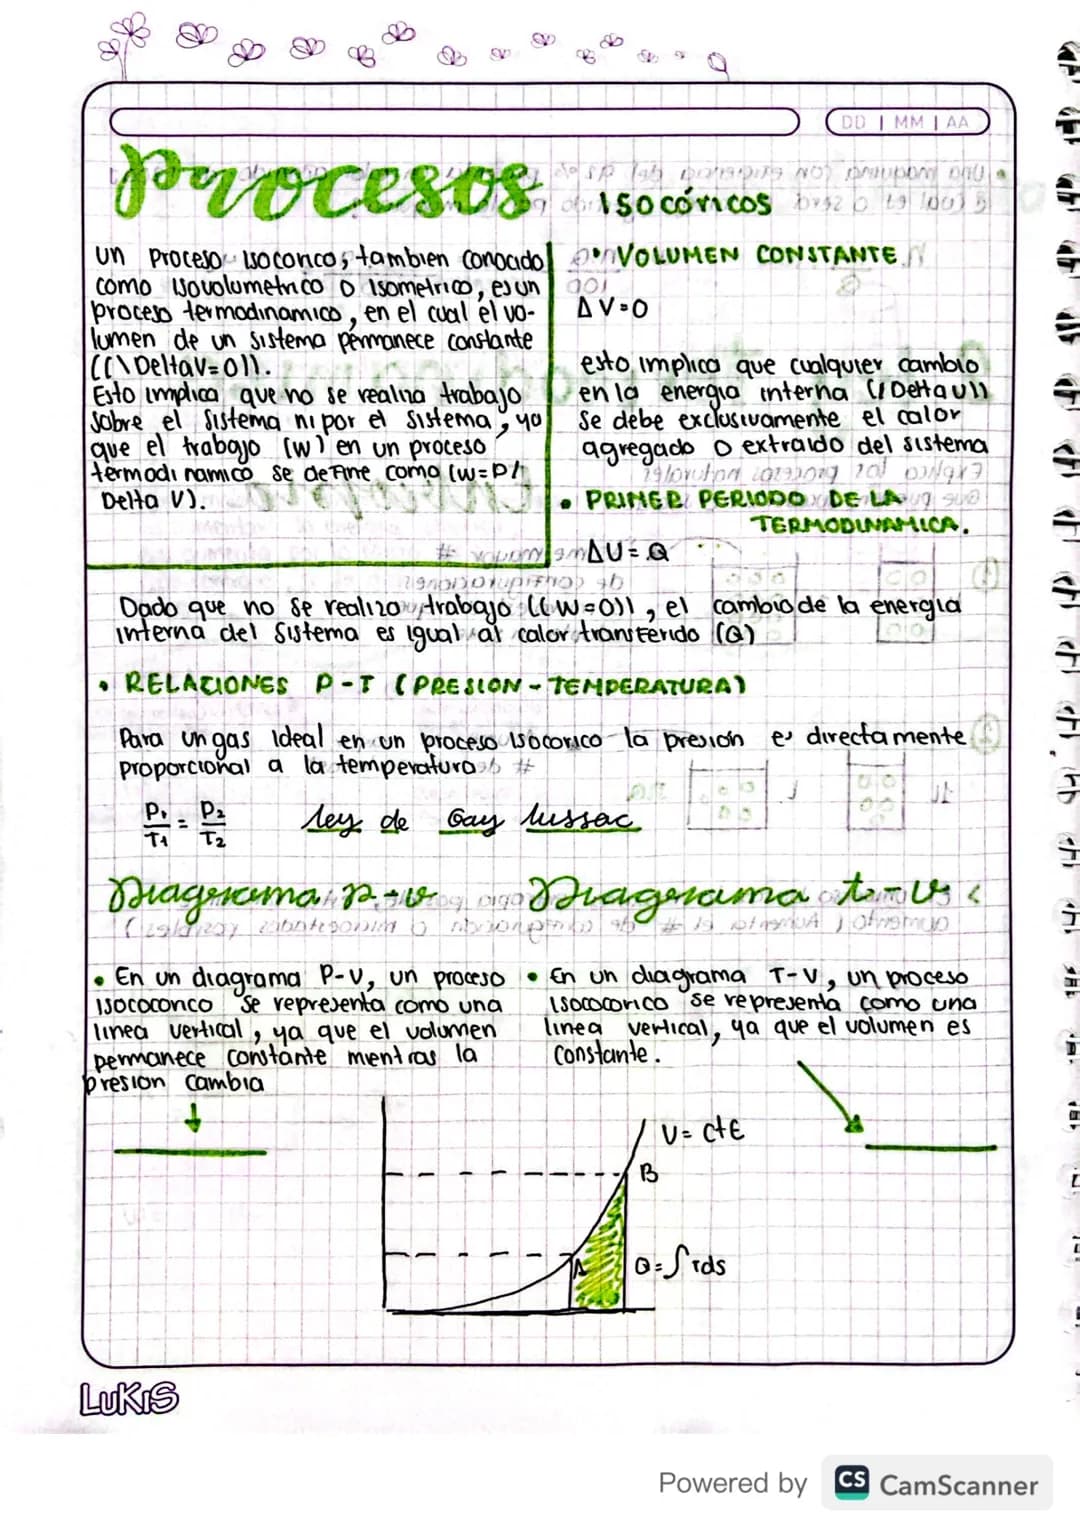 DD | MM | AA
Procesos
Isocóricos
un proceso isocorico, tambien conocido
como isovolumetrico o isometrico, es un
proceso termodinamico, en el cual el vo-
lumen de un sistema permanece constante
((\DeltaV=0)).
Esto implica que no se realiza trabajo
sobre el sistema ni por el sistema, ya
que el trabajo (w) en un proceso
termodinamico se define como (w=P/
Delta V).
• VOLUMEN CONSTANTE
ΔV=0
esto implica que cualquier cambio
en la energia interna (/Delta u))
se debe exclusivamente el calor
agregado o extraido del sistema
• PRIMER PERIODO DE LA
TERMODINAMICA.
ΔU=Q
Dado que no se realiza trabajo ((W=0)), el cambio de la energia
interna del sistema es igual al calor transferido (Q)
• RELACIONES P-T (PRESION - TEMPERATURA)
Para un gas ideal en un proceso isocorico la presion es directamente
proporcional a la temperatura
P₁/T₁ = P₂/T₂ ley de Gay lussac
Diagrama p-v
• En un diagrama P-V, un proceso
isococonco se representa como una
linea vertical, ya que el volumen
permanece constante mentras la
presion cambia
Diagrama t-v
• En un diagrama T-V, un proceso
isococorico se representa como una
linea vertical, ya que el volumen es
constante.
V= ctE
B
A
Q=∫Tds
LUKIS
Powered by CS CamScanner